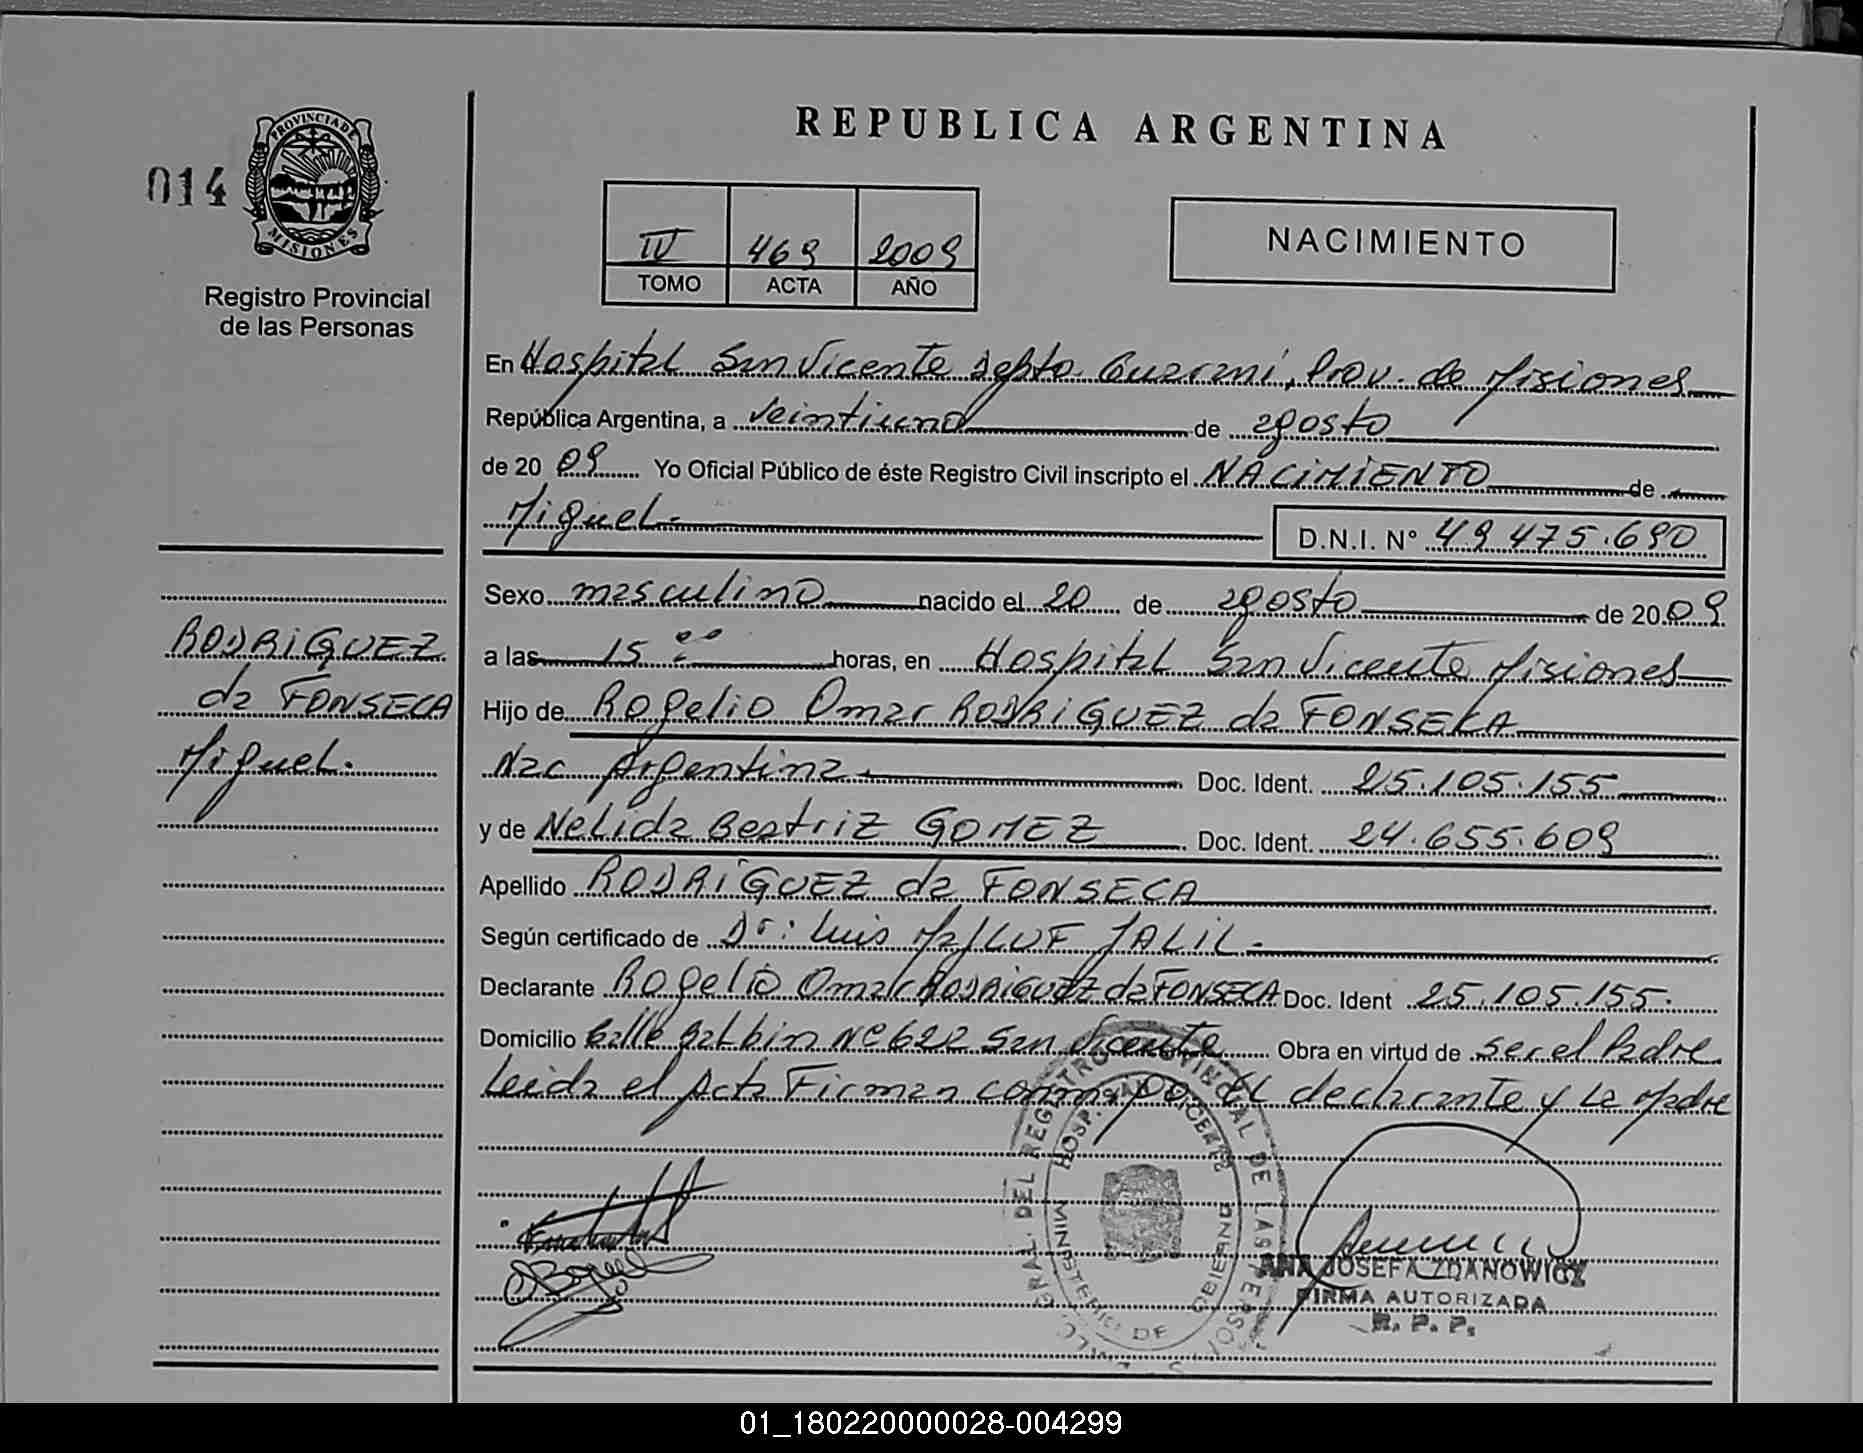 REPUBLICA ARGENTINA
PROVINCIA DE
MISIONES
014
Registro Provincial
de las Personas
IV 469 2009
TOMO ACTA AÑO
NACIMIENTO
En Hospital San Vicente Depto. Guarani, Prov. de Misiones
República Argentina, a veintiuno de agosto
de 2009 Yo Oficial Público de éste Registro Civil inscripto el NACIMIENTO de
Miguel.
D.N.I. Nº 49.475.690
Sexo masculino nacido el 20 de agosto de 2009
a las 15:00 horas, en Hospital San Vicente Misiones
Hijo de Rogelio Omar RODRIGUEZ da FONSEKA
Nac Argentina Doc. Ident. 25.105.155
y de Nelida Beatriz GOMEZ Doc. Ident. 24.655.609
Apellido RODRIGUEZ da FONSECA
Según certificado de Dr: Luis JALIL.
Declarante Rogelio Omar RODRIGUEZ da FONSECA Doc. Ident 25.105.155.
Domicilio Calle Balbin Nº 622 San Vicente Obra en virtud de ser el Padre
Leida el Acta Firman conmigo El declarante y La Madre
RODRIGUEZ
da FONSECA
Miguel.
GRAL. DEL REGISTRO PROVINCIAL DE LAS PERSONAS
HOSP. SAN VICENTE
MINISTERIO DE GOBIERNO
ANA JOSEFA ZDANOWICZ
FIRMA AUTORIZADA
R. P. P.
01_180220000028-004299